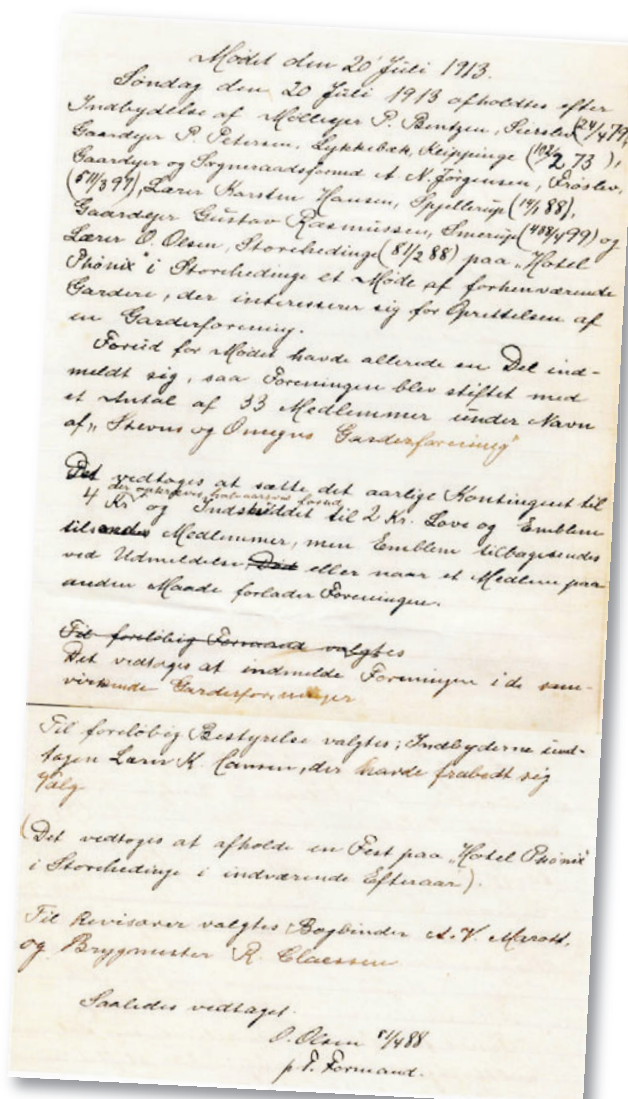 Mødet den 20 Juli 1913.
Søndag den 20 Juli 1913 afholdtes efter
Indbydelse af Mølleejer P. Bentzen, Sierslev (24/4 79),
Gaardejer P. Petersen, Lykkebæk, Klippinge (102/2 73),
Gaardejer og Sogneraadsformd et N. Jørgensen, Frøslev,
(511/3 97), Lærer Karsten Hansen, Spjellerup (14/1 88),
Gaardejer Gustav Rasmussen, Smerup (488/4 99) og
Lærer O. Olsen, Storehedinge (51/2 88) paa „Hotel
Phønix" i Storehedinge et Møde af forhenværende
Gardere, der interesserer sig for Oprettelsen af
en Garderforening.
Forud for Mødet havde allerede en Del ind-
meldt sig, saa Foreningen blev stiftet med
et Antal af 33 Medlemmer under Navn
af „Stevns og Omegns Garderforening"
Det vedtoges at sætte det aarlige Kontingent til
4 Kr og Indskuddet til 2 Kr. Love og Emblem
Medlemmer, men Emblem tilbagesendes
ved Udmeldelse eller naar et Medlem paa
anden Maade forlader Foreningen.
Til foreløbig Formand valgtes
Det vedtoges at indmelde Foreningen i de sam-
virkende Garderforeninger
Til foreløbig Bestyrelse valgtes; Indbyderne und-
tagen Lærer K. Hansen, der havde frabedt sig
Valg.
(Det vedtoges at afholde en Fest paa „Hotel Phønix"
i Storehedinge i indværende Efteraar).
Til Revisorer valgtes Bogbinder A. V. Marott.
og Brygmester R. Claessen
Saaledes vedtaget.
O. Olsen 51/4 88
p. t. Formand.